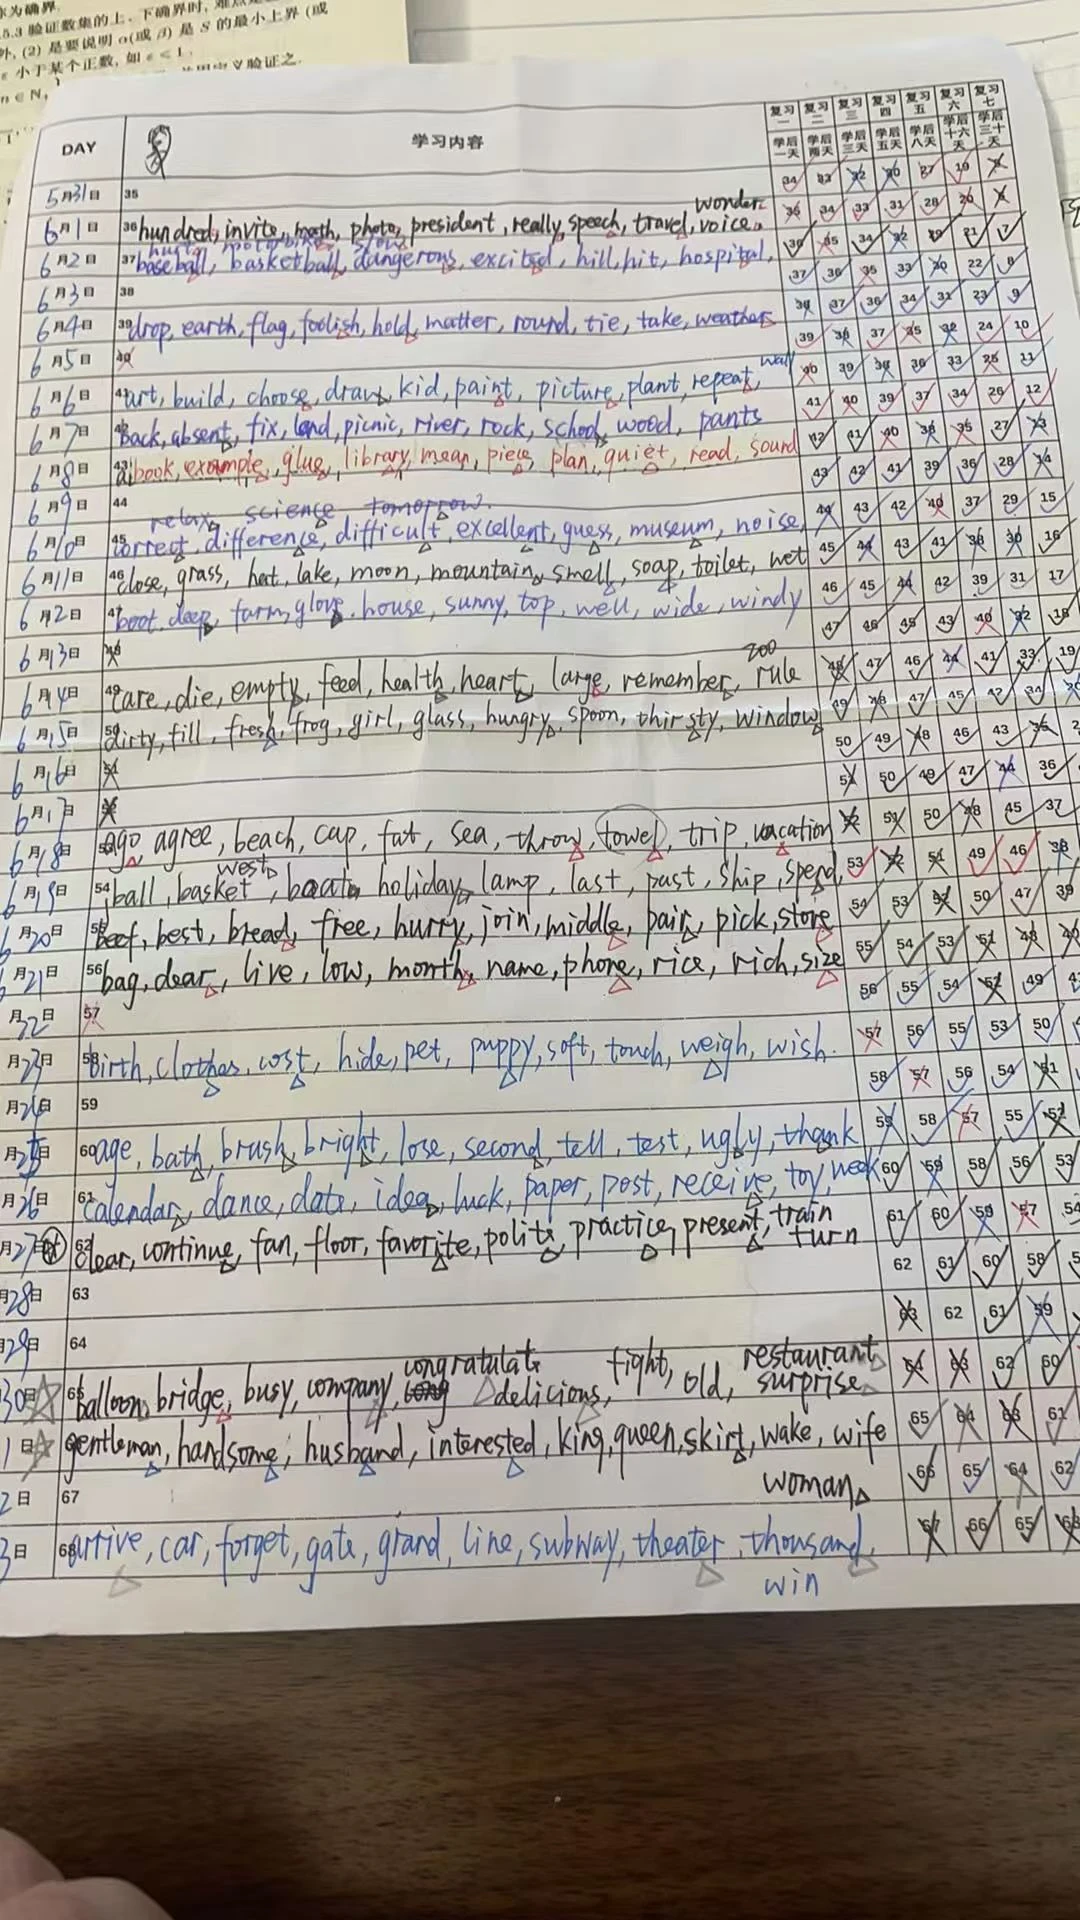 称为确界.
5.3 验证数集的上、下确界时,
外, (2) 是要说明 α(或 β) 是 S 的最小上界 (或
ε 小于某个正数, 如 ε < 1.
n ∈ N,
DAY 学习内容 复习一 复习二 复习三 复习四 复习五 复习六 复习七
学后一天 学后两天 学后三天 学后五天 学后八天 学后十六天 学后三十天
5月31日 35 34 33 32 30 27 19
wonder
6月1日 36 hundred, invite, math, photo, president, really, speech, travel, voice, 35 34 33 31 28 20
hurt motorbike slow
6月2日 37 baseball, basketball, dangerous, excited, hill, hit, hospital, 36 35 34 32 29 21 7
6月3日 38 37 36 35 33 30 22 8
6月4日 39 drop, earth, flag, foolish, hold, matter, round, tie, take, weather 38 37 36 34 31 23 9
6月5日 40 39 38 37 35 32 24 10
wall
6月6日 41 art, build, choose, draw, kid, paint, picture, plant, repeat, 40 39 38 36 33 25 11
6月7日 42 back, absent, fix, lend, picnic, river, rock, school, wood, pants 41 40 39 37 34 26 12
6月8日 43 book, example, glue, library, mean, piece, plan, quiet, read, sound 42 41 40 38 35 27 13
6月9日 44 43 42 41 39 36 28 14
relax, science tomorrow.
6月10日 45 correct, difference, difficult, excellent, guess, museum, noise, 44 43 42 40 37 29 15
6月11日 46 close, grass, hat, lake, moon, mountain, smell, soap, toilet, wet 45 44 43 41 38 30 16
6月2日 47 boot, deep, farm, glove, house, sunny, top, well, wide, windy 46 45 44 42 39 31 17
6月13日 48 47 46 45 43 40 32 18
zoo
6月4日 49 care, die, empty, feed, health, heart, large, remember, rule 48 47 46 44 41 33 19
6月15日 50 dirty, fill, fresh, frog, girl, glass, hungry, spoon, thirsty, window 49 48 47 45 42 34
6月16日 51 50 49 48 46 43 35
6月17日 52 51 50 49 47 44 36
6月18日 53 ago, agree, beach, cap, fat, sea, throw, towel, trip, vacation 52 51 50 48 45 37
west
6月19日 54 ball, basket, boat, holiday, lamp, last, past, ship, spend, 53 52 51 49 46 38
月20日 55 beef, best, bread, free, hurry, join, middle, pair, pick, store 54 53 52 50 47 39
月21日 56 bag, dear, live, low, month, name, phone, rice, rich, size 55 54 53 51 48 40
月22日 57 56 55 54 52 49
月23日 58 birth, clothes, cost, hide, pet, puppy, soft, touch, weigh, wish. 57 56 55 53 50
月24日 59 58 57 56 54 51
月25日 60 age, bath, brush, bright, lose, second, tell, test, ugly, thank 59 58 57 55 52
月26日 61 calendar, dance, date, idea, luck, paper, post, receive, toy, week 60 59 58 56 53
月27日 62 clear, continue, fan, floor, favorite, polite, practice, present, train 61 60 59 57 54
turn
月28日 63 62 61 60 58
月29日 64 63 62 61 59
congratulate fight, restaurant
30日 65 balloon, bridge, busy, company, delicious, old, surprise 64 63 62 60
1日 gentleman, handsome, husband, interested, king, queen, skirt, wake, wife 65 64 63 61
woman
2日 67 66 65 64 62
3日 68 arrive, car, forget, gate, grand, line, subway, theater, thousand, 67 66 65 63
win